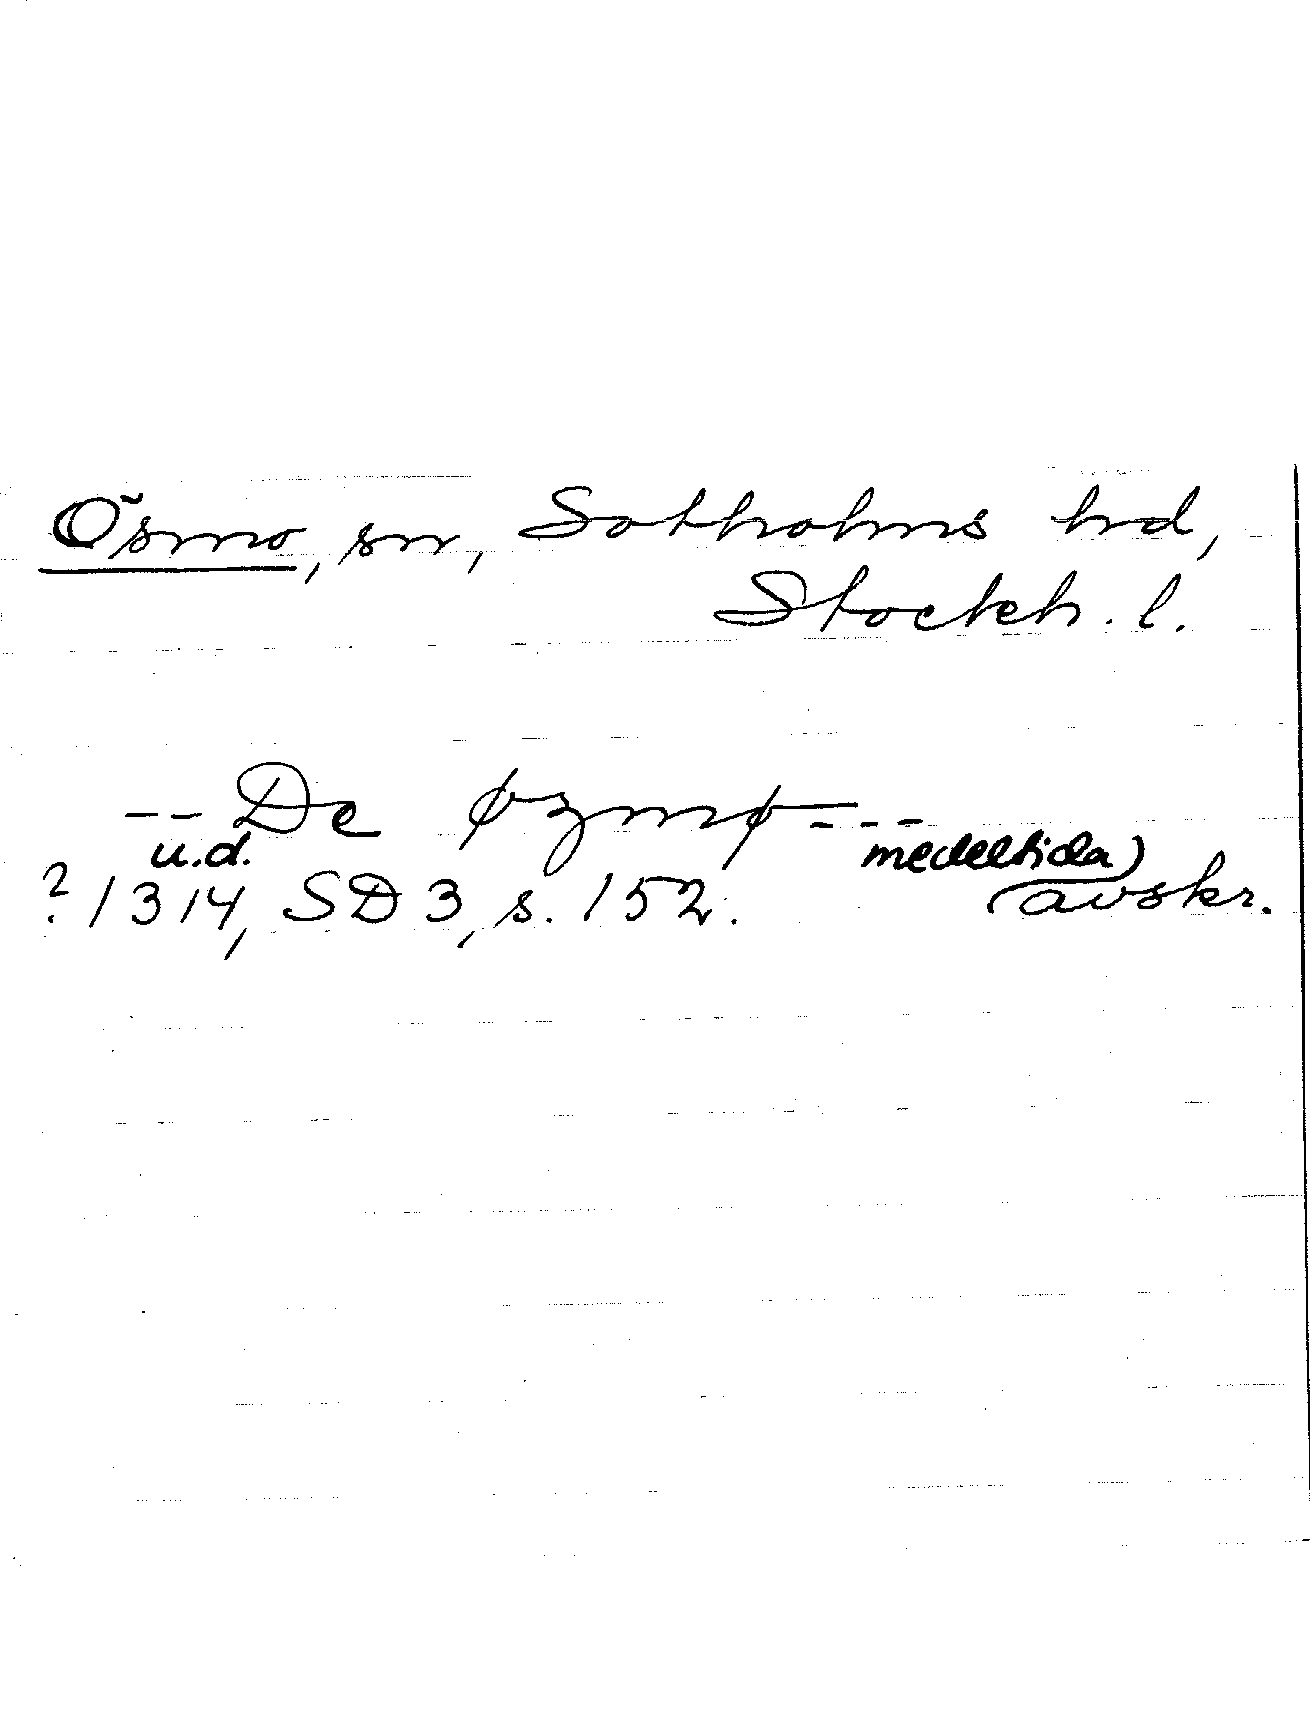 Ösmo, sn, Sotholms hd,
Stockh. l.
-- De øzmø ---
u.d. medeltida
? 1314, SD 3, s. 152. avskr.